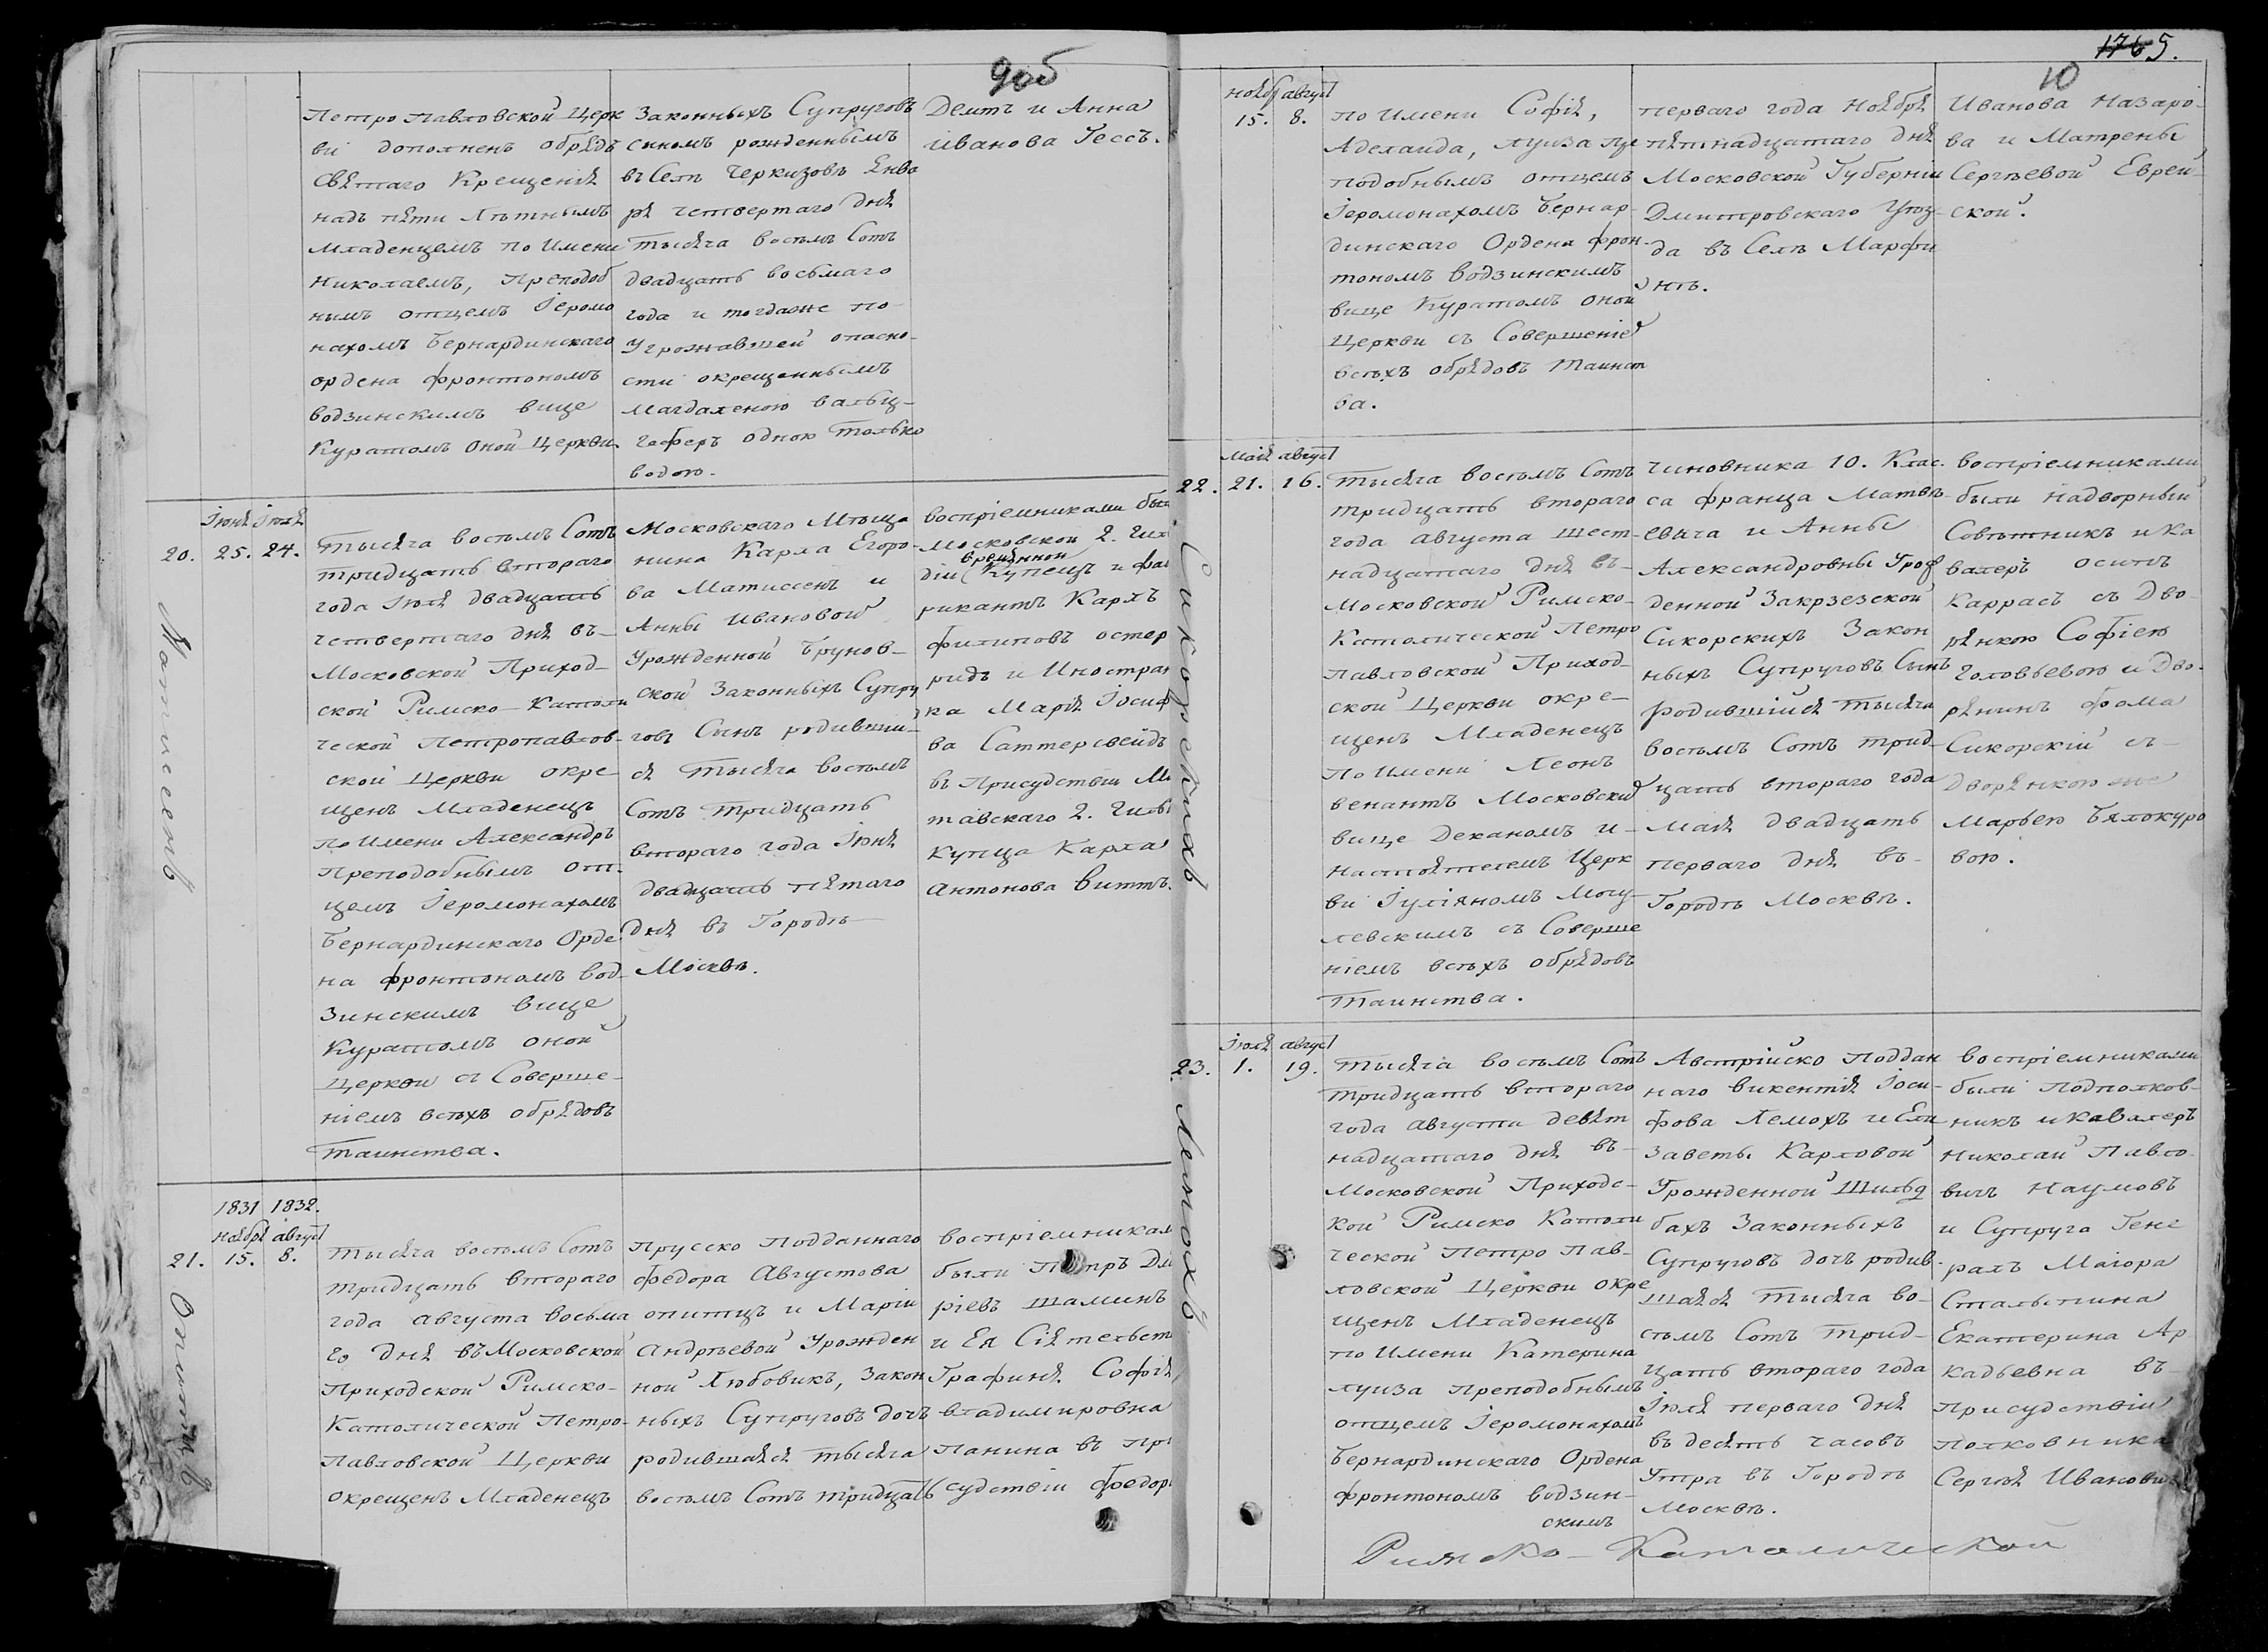 9об
Петропавловской Церк
ви дополненъ обрядъ
Святаго Крещенія
надъ пяти лѣтнымъ
Младенцемъ по Имени
Николаемъ, Преподоб
нымъ отцемъ Іеромо
нахомъ Бернардинскаго
ордена Фронтономъ
Водзинскимъ вице
Куратомъ оной Церкви.
Законныхъ Супруговъ
сыномъ рожденнымъ
въ Селѣ Черкизовѣ Енва
ря четвертаго дня
тысяча восемь Сотъ
двадцать восьмаго
года и тогдаже по
Угрожавшей опасно-
сти окрещеннымъ
Магдаленою Вальц-
геферъ одною только
водою.
Демтъ и Анна
Иванова Гессъ.
Іюня Іюля
20. 25. 24.
Матисенъ
Тысяча восемь Сотъ
тридцать втораго
года Іюля двадцать
четвертаго дня въ-
Московской Приход-
ской Римско-Католи
ческой Петропавлов-
ской Церкви окре-
щенъ Младенецъ
по Имени Александръ
Преподобнымъ от-
цемъ Іеромонахомъ
Бернардинскаго Орде
на Фронтономъ Вод-
зинскимъ Вице
Куратомъ оной
Церкви съ Соверше-
ніемъ всѣхъ обрядовъ
Таинства.
Московскаго Мѣща
нина Карла Егоро-
ва Матиссенъ и
Анны Ивановой
Урожденной Брунов-
ской Законныхъ Супру
говъ Сынъ родивший-
ся тысяча восемь
Сотъ тридцать
втораго года Іюня
двадцать пятаго
дня въ Городѣ
Москвѣ.
Воспріемниками бы
Московской 2. Гил
временной
діи Купецъ и фаб
рикантъ Карлъ
Филиповъ Остер
ридъ и Иностран
ка Марія Іосиф
ва Саттерсвейдъ
въ Присудствіи Ми
тавскаго 2. Гиль
купца Карла
Антонова Виттъ.
1831 1832.
Ноября август
21. 15. 8.
Опитцъ
Тысяча восемь Сотъ
тридцать втораго
года августа восьма
го дня въ Московской
Приходской Римско-
Католической Петро-
павловской Церкви
окрещенъ Младенецъ
Прусско подданнаго
Федора Августова
Опитцъ и Маріи
Андреевой Урожден
ной Любовикъ, Закон
ныхъ Супруговъ дочъ
родившаяся тысяча
восемь Сотъ тридцать
Воспріемникам
были Петръ Дми
ріевъ Шаминъ
и Ея Сіятельст
Графиня Софія
Владимировна
Панина въ При
судствіи Федора
1765.
10
Ноябр август
15. 8.
по Имени Софія,
Аделаида, Луиза Пре
подобнымъ отцемъ
Іеромонахомъ Бернар-
динскаго Ордена Фрон-
тономъ Водзинскимъ
вице Куратомъ оной
Церкви съ Совершеніе
всѣхъ обрядовъ Таинст
ва.
перваго года Ноября
пятнадцатаго дня
Московской Губерніи
Дмитровскаго Уѣз-
да въ Селѣ Марфи
нѣ.
Иванова Назаро-
ва и Матрены
Сергѣевой Еврей-
ской.
Мая август
22. 21. 16.
Сикорскихъ
Тысяча восемь Сотъ
тридцать втораго
года августа шест-
надцатаго дня въ-
Московской Римско-
Католической Петро
павловской Приход-
ской Церкви окре-
щенъ Младенецъ
по Имени Леонъ
Венантъ Московский
вице Деканомъ и-
настоятелемъ Церк
ви Іуліяномъ Могу-
левскимъ съ Соверше
ніемъ всѣхъ обрядовъ
Таинства.
Чиновника 10. Клас-
са Франца Матвѣ-
евича и Анны
Александровны Урож
денной Закрзезской
Сикорскихъ Закон
ныхъ Супруговъ Сынъ
родившійся тысяча
восемь Сотъ трид-
цать втораго года
Мая двадцать
перваго дня въ-
Городѣ Москвѣ.
Воспріемниками
были Надворный
Совѣтникъ и Ка
валеръ Осипъ
Каррасъ съ Дво-
рянкою Софіею
Головьевою и Дво-
рянинъ Фома
Сикорскій съ-
Дворянкою же
Марьею Бѣлокуро
вою.
Іюля август
23. 1. 19.
Лемохъ
Тысяча восемь Сотъ
тридцать втораго
года августа девят
надцатаго дня въ-
Московской Приходс-
кой Римско Католи
ческой Петро Пав-
ловской Церкви окре
щенъ Младенецъ
по Имени Катерина
Луиза Преподобнымъ
отцемъ Іеромонахомъ
Бернардинскаго Ордена
Фронтономъ Водзин-
скимъ
Австрійско поддан
наго Викентія Іоси-
фова Лемохъ и Ели
заветы Карловой
Урожденной Шильд
бахъ Законныхъ
Супруговъ дочъ родив-
шаяся тысяча во-
семь Сотъ трид-
цать втораго года
Іюля перваго дня
въ десять часовъ
Утра въ Городѣ
Москвѣ.
Воспріемниками
были Подполков-
никъ и Кавалеръ
Николай Павло
вичъ Наумовъ
и Супруга Гене
ралъ Маіора
Сталыпина
Екатерина Ар
кадьевна въ-
присудствіи
полковника
Сергѣя Иванович
Римско-Католической